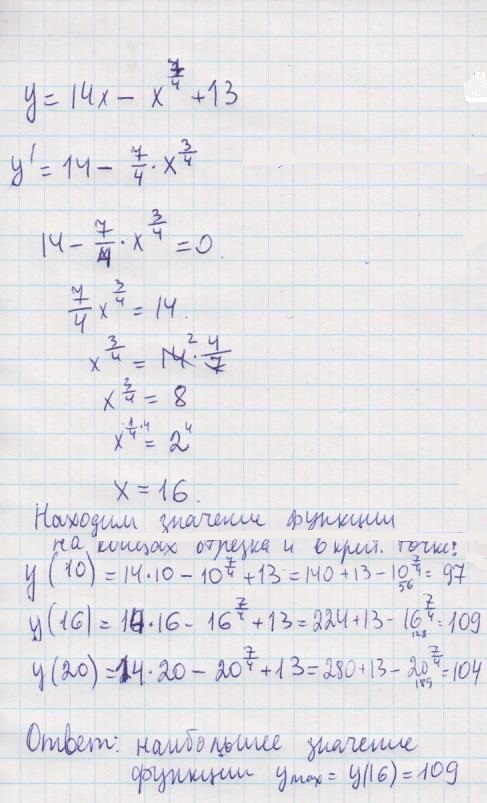 y = 14x − x^(7/4) + 13
y' = 14 − 7/4 · x^(3/4)
14 − 7/4 · x^(3/4) = 0
7/4 x^(3/4) = 14.
x^(3/4) = 14² · 4/7
x^(3/4) = 8
x^(1/4·4) = 2⁴
x = 16.
Находим значение функции
на концах отрезка и в крит. точке:
y(10) = 14·10 − 10^(7/4) + 13 = 140 + 13 − 10^(7/4) = 97
56
y(16) = 14·16 − 16^(7/4) + 13 = 224 + 13 − 16^(7/4) = 109
128
y(20) = 14·20 − 20^(7/4) + 13 = 280 + 13 − 20^(7/4) = 104
189
Ответ: наибольшее значение
функции y max = y(16) = 109